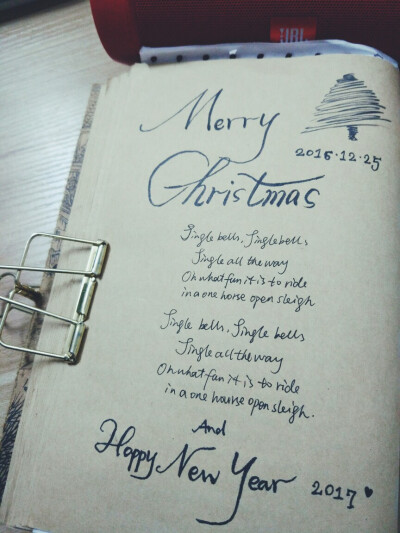 JBL
Merry
2016.12.25
Christmas
Jingle bells, Jingle bells
Jingle all the way
Oh what fun it is to ride
in a one horse open sleigh
Jingle bells, Jingle bells
Jingle all the way
Oh what fun it is to ride
in a one hourse open sleigh.
And
Happy New Year 2017